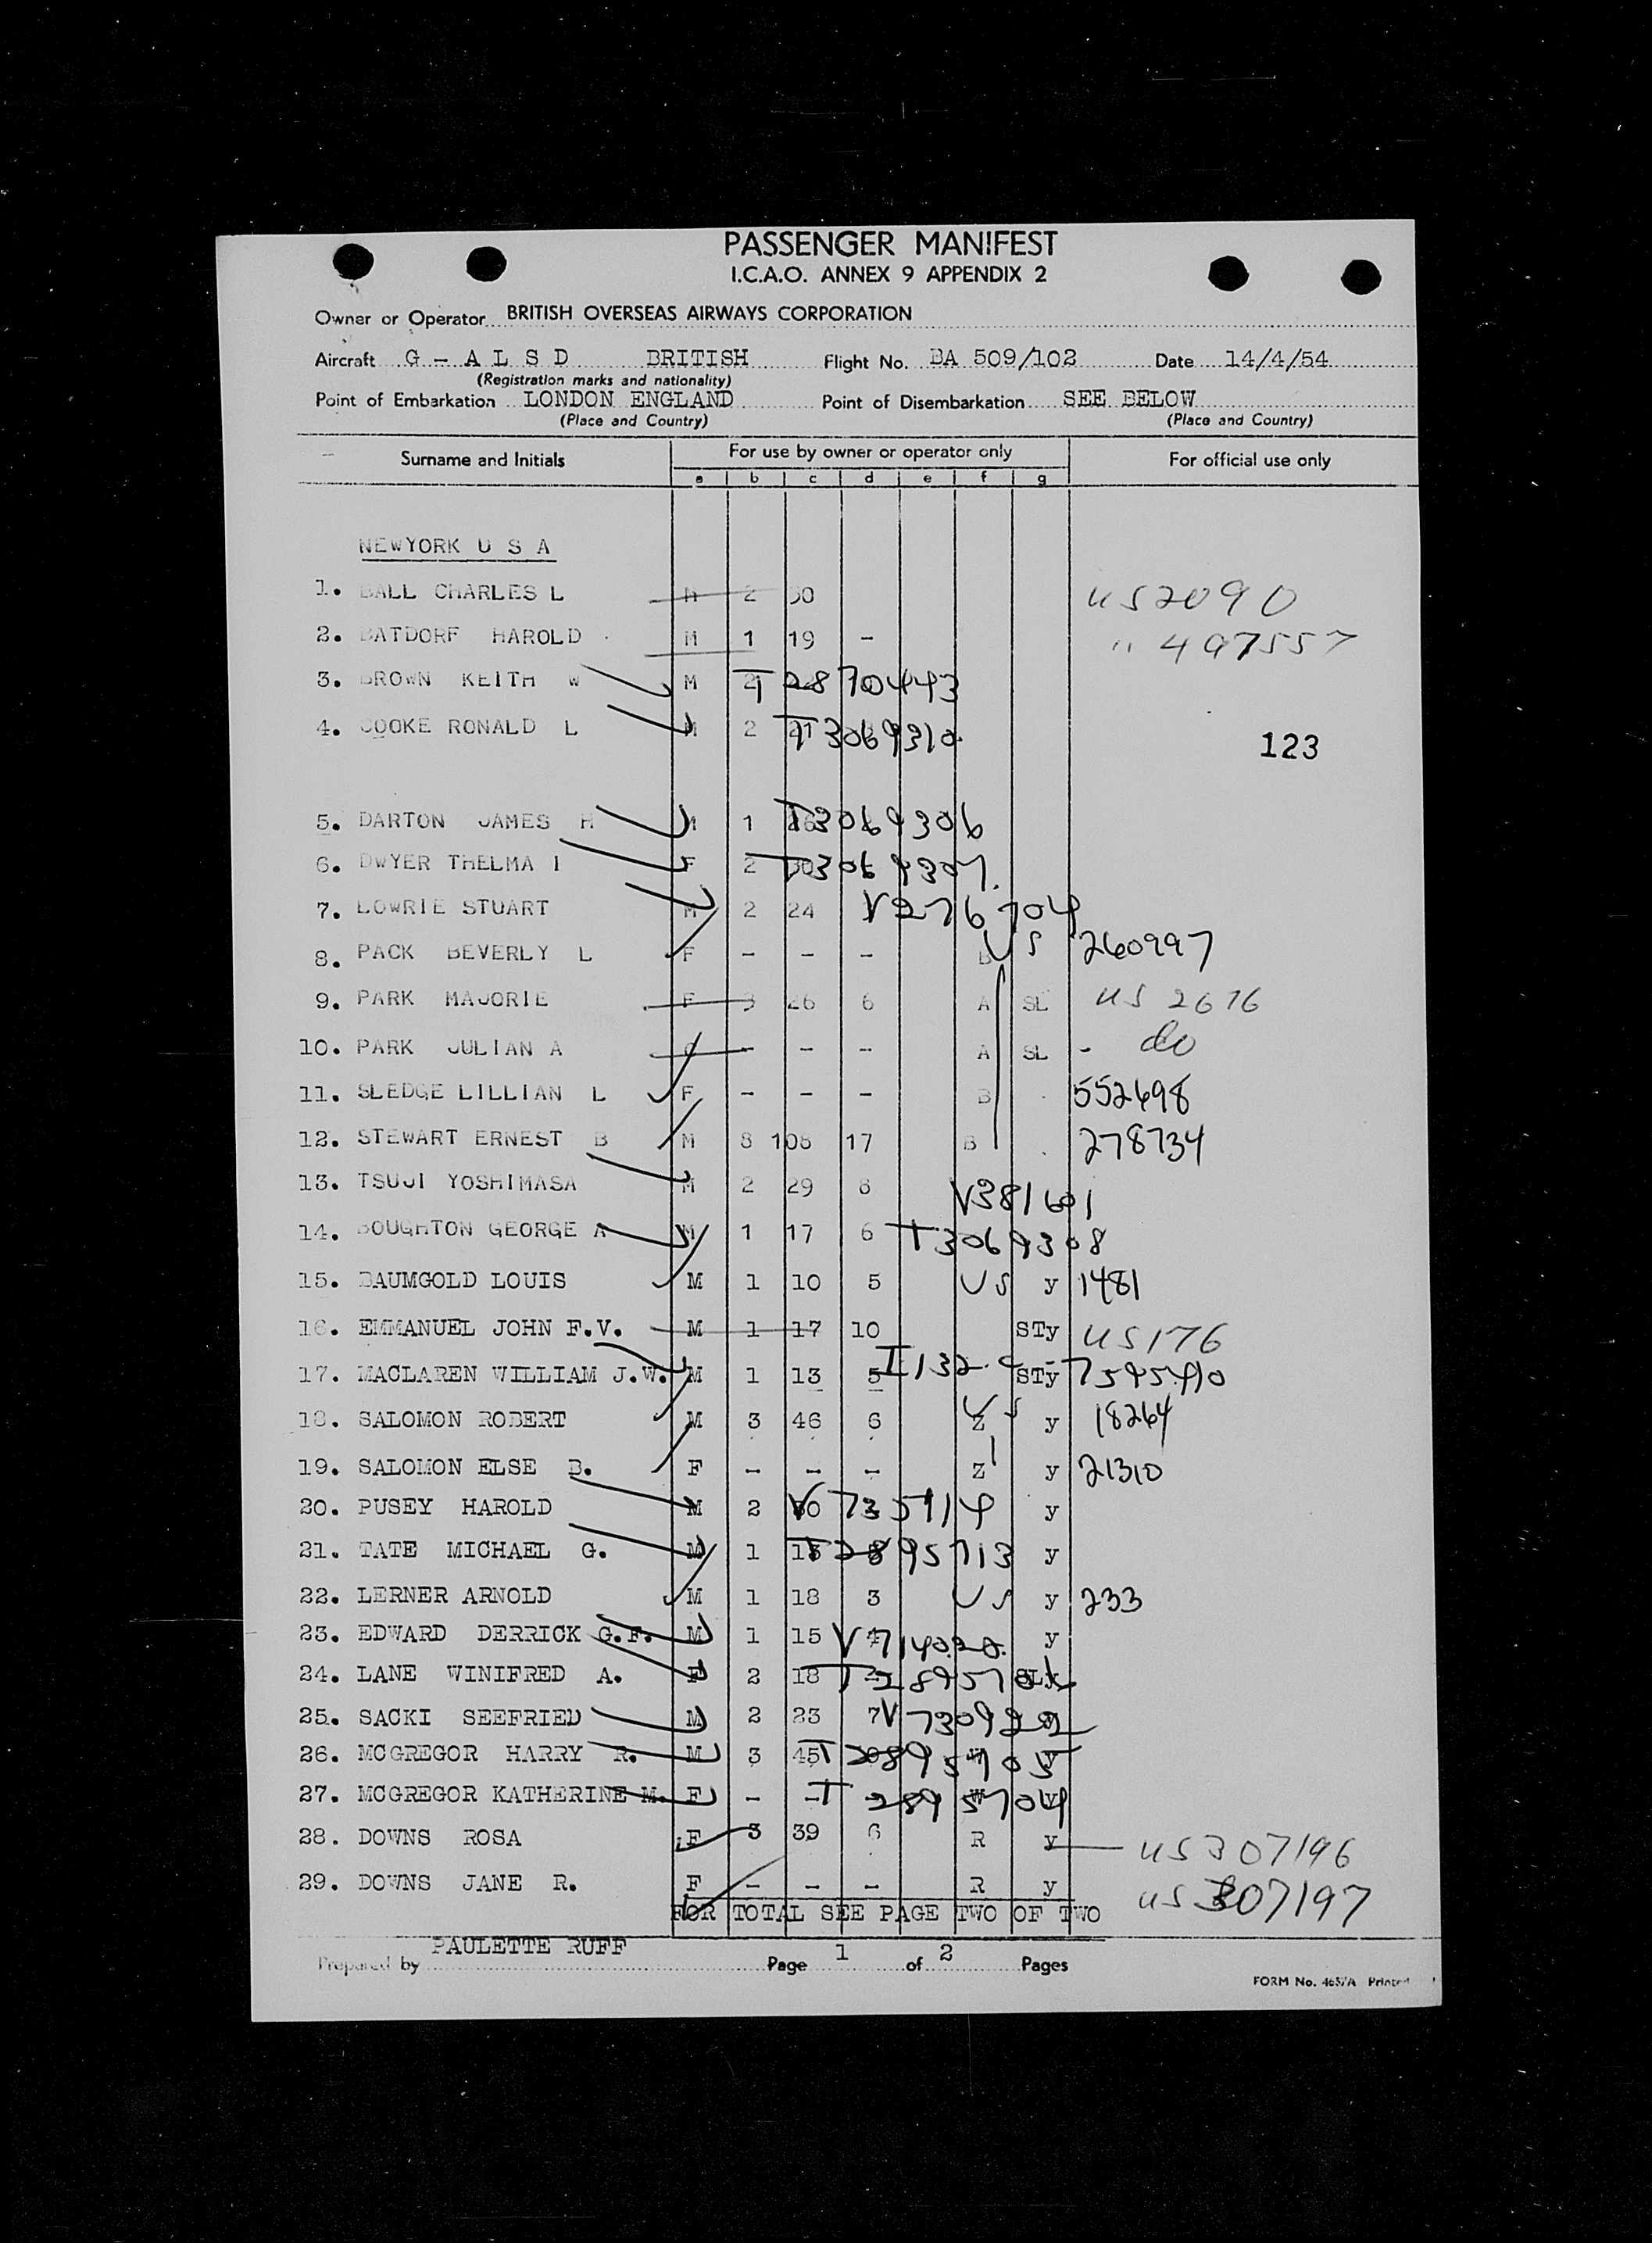 PASSENGER MANIFEST
I.C.A.O. ANNEX 9 APPENDIX 2
Owner or Operator BRITISH OVERSEAS AIRWAYS CORPORATION
Aircraft G - A L S D BRITISH Flight No. BA 509/102 Date 14/4/54
(Registration marks and nationality)
Point of Embarkation LONDON ENGLAND Point of Disembarkation SEE BELOW
(Place and Country) (Place and Country)
Surname and Initials For use by owner or operator only For official use only
a b c d e f g
NEWYORK U S A
1. BALL CHARLES L M 2 30 US2090
2. BATDORF HAROLD M 1 19 - " 497557
3. BROWN KEITH W M 2 T 28704443
4. COOKE RONALD L M 2 21 T3069310
123
5. DARTON JAMES H M 1 T3069306
6. DWYER THELMA I F 2 30 T3069307
7. LOWRIE STUART M 2 24 V276704
8. PACK BEVERLY L F - - - B US 260997
9. PARK MAJORIE F 3 26 6 A SL US 2676
10. PARK JULIAN A - - - A SL - do
11. SLEDGE LILLIAN L F - - - B 552698
12. STEWART ERNEST B M 8 108 17 B 278734
13. TSUJI YOSHIMASA M 2 29 8 V381601
14. BOUGHTON GEORGE A M 1 17 6 T3069308
15. BAUMGOLD LOUIS M 1 10 5 US y 1481
16. EMMANUEL JOHN F.V. M 1 17 10 STy US176
17. MACLAREN WILLIAM J.W. M 1 13 5 I132 STy
18. SALOMON ROBERT M 3 46 6 US Z y 18264
19. SALOMON ELSE B. F - - - Z y 21310
20. PUSEY HAROLD M 2 V 735714 y
21. TATE MICHAEL G. M 1 T2895713 y
22. LERNER ARNOLD M 1 18 3 US y 233
23. EDWARD DERRICK G.F. M 1 15 V714020 y
24. LANE WINIFRED A. F 2 18 T 289570 SL
25. SACKI SEEFRIED M 2 23 7 V 730922
26. MCGREGOR HARRY R. M 3 45 T 2895705
27. MCGREGOR KATHERINE M. F - - T 2895704
28. DOWNS ROSA F 3 39 6 R y US307196
29. DOWNS JANE R. F - - - R y US307197
FOR TOTAL SEE PAGE TWO OF TWO
Prepared by PAULETTE RUFF Page 1 of 2 Pages
FORM No. 4657A